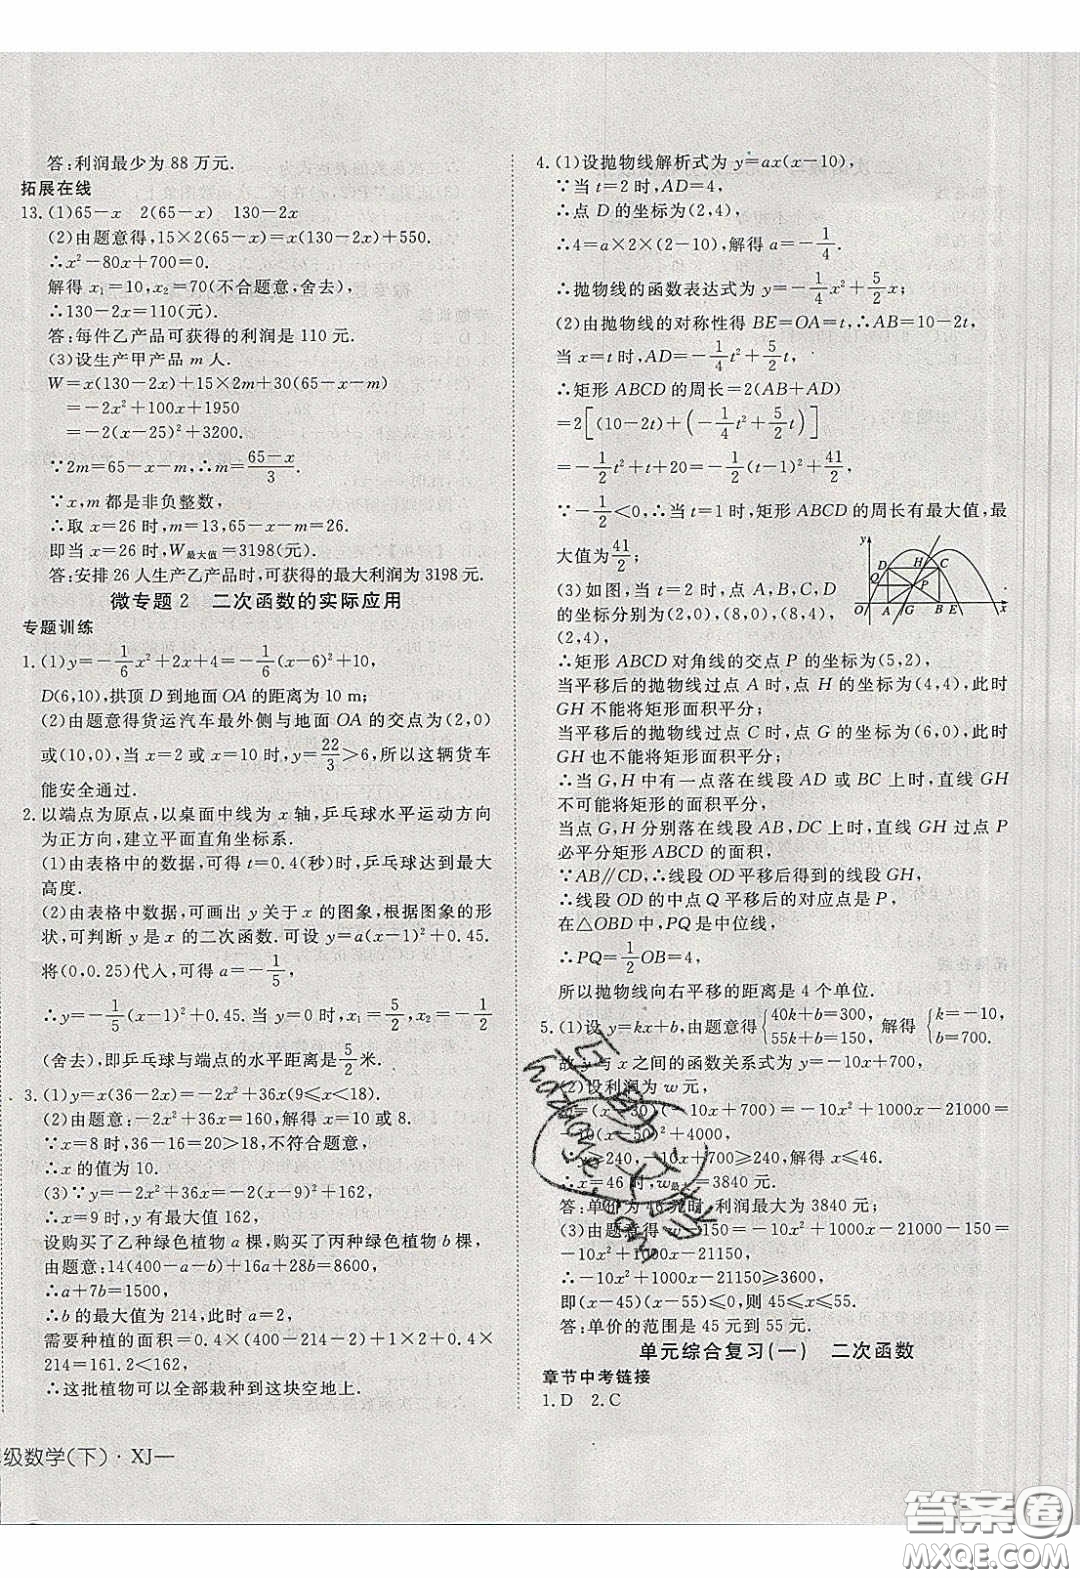 答:利润最少为 88 万元.
拓展在线
13. (1)65-x　2(65-x)　130-2x
(2)由题意得,15×2(65-x)=x(130-2x)+550.
∴x²-80x+700=0.
解得 x₁=10,x₂=70(不合题意,舍去),
∴130-2x=110(元).
答:每件乙产品可获得的利润是 110 元.
(3)设生产甲产品 m 人.
W=x(130-2x)+15×2m+30(65-x-m)
=-2x²+100x+1950
=-2(x-25)²+3200.
∵2m=65-x-m,∴m=(65-x)/3.
∵x,m 都是非负整数,
∴取 x=26 时,m=13,65-x-m=26.
即当 x=26 时,W最大值=3198(元).
答:安排 26 人生产乙产品时,可获得的最大利润为 3198 元.
微专题 2　二次函数的实际应用
专题训练
1. (1)y=-1/6x²+2x+4=-1/6(x-6)²+10,
D(6,10),拱顶 D 到地面 OA 的距离为 10 m;
(2)由题意得货运汽车最外侧与地面 OA 的交点为(2,0)
或(10,0),当 x=2 或 x=10 时,y=22/3>6,所以这辆货车
能安全通过.
2. 以端点为原点,以桌面中线为 x 轴,乒乓球水平运动方向
为正方向,建立平面直角坐标系.
(1)由表格中的数据,可得 t=0.4(秒)时,乒乓球达到最大
高度.
(2)由表格中数据,可画出 y 关于 x 的图象,根据图象的形
状,可判断 y 是 x 的二次函数.可设 y=a(x-1)²+0.45.
将(0,0.25)代入,可得 a=-1/5,
∴y=-1/5(x-1)²+0.45. 当 y=0 时,x₁=5/2,x₂=-1/2
(舍去),即乒乓球与端点的水平距离是 5/2 米.
3. (1)y=x(36-2x)=-2x²+36x(9≤x<18).
(2)由题意:-2x²+36x=160,解得 x=10 或 8.
∵x=8 时,36-16=20>18,不符合题意,
∴x 的值为 10.
(3)∵y=-2x²+36x=-2(x-9)²+162,
∴x=9 时,y 有最大值 162,
设购买了乙种绿色植物 a 棵,购买了丙种绿色植物 b 棵,
由题意:14(400-a-b)+16a+28b=8600,
∴a+7b=1500,
∴b 的最大值为 214,此时 a=2,
需要种植的面积=0.4×(400-214-2)+1×2+0.4×
214=161.2<162,
∴这批植物可以全部栽种到这块空地上.
4. (1)设抛物线解析式为 y=ax(x-10),
∵当 t=2 时,AD=4,
∴点 D 的坐标为(2,4),
∴4=a×2×(2-10),解得 a=-1/4.
∴抛物线的函数表达式为 y=-1/4x²+5/2x;
(2)由抛物线的对称性得 BE=OA=t,∴AB=10-2t,
当 x=t 时,AD=-1/4t²+5/2t,
∴矩形 ABCD 的周长=2(AB+AD)
=2[(10-2t)+(-1/4t²+5/2t)]
=-1/2t²+t+20=-1/2(t-1)²+41/2.
∵-1/2<0,∴当 t=1 时,矩形 ABCD 的周长有最大值,最
大值为 41/2;
(3)如图,当 t=2 时,点 A,B,C,D
的坐标分别为(2,0),(8,0),(8,4),
(2,4),
y D H C Q P O A G B E x
∴矩形 ABCD 对角线的交点 P 的坐标为(5,2),
当平移后的抛物线过点 A 时,点 H 的坐标为(4,4),此时
GH 不能将矩形面积平分;
当平移后的抛物线过点 C 时,点 G 的坐标为(6,0),此时
GH 也不能将矩形面积平分;
∴当 G,H 中有一点落在线段 AD 或 BC 上时,直线 GH
不可能将矩形的面积平分,
当点 G,H 分别落在线段 AB,DC 上时,直线 GH 过点 P
必平分矩形 ABCD 的面积,
∵AB∥CD,∴线段 OD 平移后得到的线段 GH,
∴线段 OD 的中点 Q 平移后的对应点是 P,
在△OBD 中,PQ 是中位线,
∴PQ=1/2OB=4,
所以抛物线向右平移的距离是 4 个单位.
5. (1)设 y=kx+b,由题意得{40k+b=300, 55k+b=150, 解得 {k=-10, b=700,
故 y 与 x 之间的函数关系式为 y=-10x+700,
(2)设利润为 w 元,
w=(x-30)(-10x+700)=-10x²+1000x-21000=
-10(x-50)²+4000,
∵y≥240,-10x+700≥240,解得 x≤46.
∴x=46 时,w最大=3840,
答:单价为 46 元时,利润最大为 3840 元;
(3)由题意得 w-150=-10x²+1000x-21000-150=
-10x²+1000x-21150,
∴-10x²+1000x-21150≥3600,
即(x-45)(x-55)≤0,则 45≤x≤55.
答:单价的范围是 45 元到 55 元.
单元综合复习(一)　二次函数
章节中考链接
1. D　2. C
级数学(下)·XJ—
答案卷
MXQE.COM